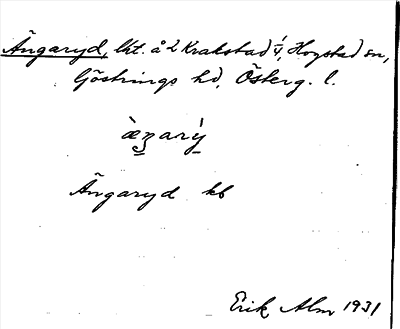 Ängaryd, lkt. å 2 Krakstad v, Hogstad sn,
Göstrings hd, Österg. l.
Ängaryd kb
Erik Alm 1931